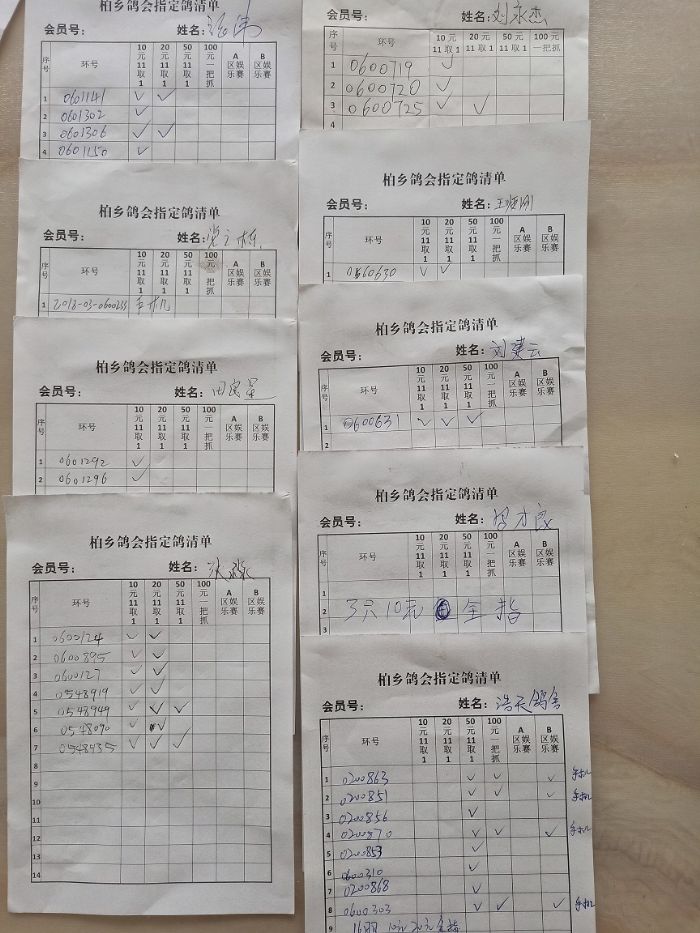 柏乡鸽会指定鸽清单
会员号： 姓名：
序号 环号 10元11取1 20元11取1 50元11取1 100元一把抓 A区娱乐赛 B区娱乐赛
1 0601141 ✓ ✓
2 0601302 ✓
3 0601306 ✓ ✓
4 0601150 ✓
柏乡鸽会指定鸽清单
会员号： 姓名：
序号 环号 10元11取1 20元11取1 50元11取1 100元一把抓 A区娱乐赛 B区娱乐赛
1 2018-03-0600233 手机
柏乡鸽会指定鸽清单
会员号： 姓名：
序号 环号 10元11取1 20元11取1 50元11取1 100元一把抓 A区娱乐赛 B区娱乐赛
1 0601292 ✓
2 0601296 ✓
柏乡鸽会指定鸽清单
会员号： 姓名：
序号 环号 10元11取1 20元11取1 50元11取1 100元一把抓 A区娱乐赛 B区娱乐赛
1 0600124 ✓ ✓
2 0600895 ✓ ✓
3 0600127 ✓ ✓
4 0548919 ✓ ✓
5 0548949 ✓ ✓ ✓
6 0548090 ✓ ✓
7 0548435 ✓ ✓ ✓
8
9
10
11
12
13
14
会员号： 姓名：刘永杰
序号 环号 10元11取1 20元11取1 50元11取1 100元一把抓
1 0600719 ✓
2 0600720 ✓
3 0600725 ✓ ✓
4
柏乡鸽会指定鸽清单
会员号： 姓名：
序号 环号 10元11取1 20元11取1 50元11取1 100元一把抓 A区娱乐赛 B区娱乐赛
1 0560630 ✓ ✓
柏乡鸽会指定鸽清单
会员号： 姓名：刘建云
序号 环号 10元11取1 20元11取1 50元11取1 100元一把抓 A区娱乐赛 B区娱乐赛
1 0600631 ✓ ✓ ✓
2
柏乡鸽会指定鸽清单
会员号： 姓名：
序号 环号 10元11取1 20元11取1 50元11取1 100元一把抓 A区娱乐赛 B区娱乐赛
1
2 3只10元 全指
3
柏乡鸽会指定鸽清单
会员号： 姓名：浩天鸽舍
序号 环号 10元11取1 20元11取1 50元11取1 100元一把抓 A区娱乐赛 B区娱乐赛
1 0200863 ✓ ✓ ✓ 手机
2 0200851 ✓ ✓ ✓ 手机
3 0200856 ✓
4 0200870 ✓ ✓ ✓ 手机
5 0200853 ✓
6 0600310 ✓
7 0200868 ✓
8 0600303 ✓ ✓ ✓ 手机
9 16羽 10元20元全指